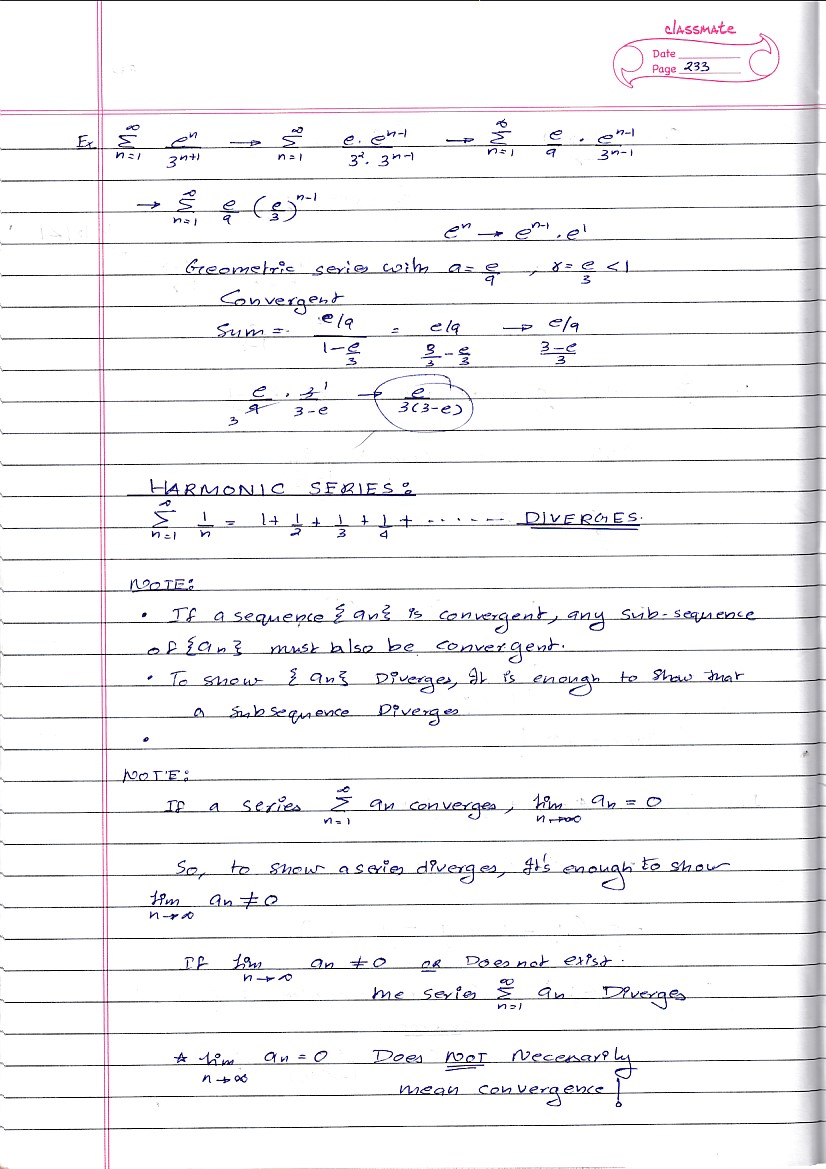 classmate
Date
Page 233
Ex. ∞Σn=1 eⁿ/3ⁿ⁺¹ → ∞Σn=1 e·eⁿ⁻¹/3²·3ⁿ⁻¹ → ∞Σn=1 e/9 · eⁿ⁻¹/3ⁿ⁻¹
→ ∞Σn=1 e/9 (e/3)ⁿ⁻¹
eⁿ → eⁿ⁻¹·e¹
Geometric series with a = e/9, r = e/3 < 1
Convergent
Sum = (e/9)/(1-e/3) = (e/9)/(3/3 - e/3) → (e/9)/((3-e)/3)
e/9 3 · 3 1/(3-e) → e/3(3-e)
HARMONIC SERIES:
∞Σn=1 1/n = 1 + 1/2 + 1/3 + 1/4 + ...... DIVERGES.
NOTE:
• If a sequence {an} is convergent, any sub-sequence
of {an} must also be convergent.
• To show {an} Diverges, It is enough to show that
a subsequence Diverges
•
NOTE:
If a series ∞Σn=1 an converges, lim n→∞ an = 0
So, to show a series diverges, It's enough to show
lim n→∞ an ≠ 0
If lim n→∞ an ≠ 0 OR Does not exist.
the series ∞Σn=1 an Diverges
* lim n→∞ an = 0 Does NOT Necessarily
mean convergence!